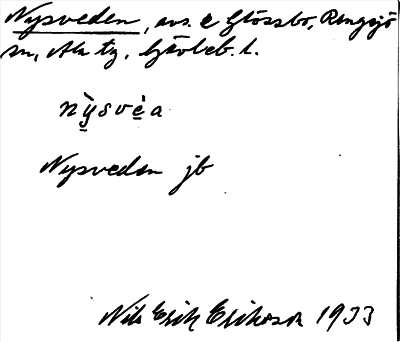 Nysveden, avs. t Glössbo, Rengsjö
sn, Ala tg, Gävleb. l.
nỳsvèa
Nysveden jb
Nils Erik Eriksson 1933